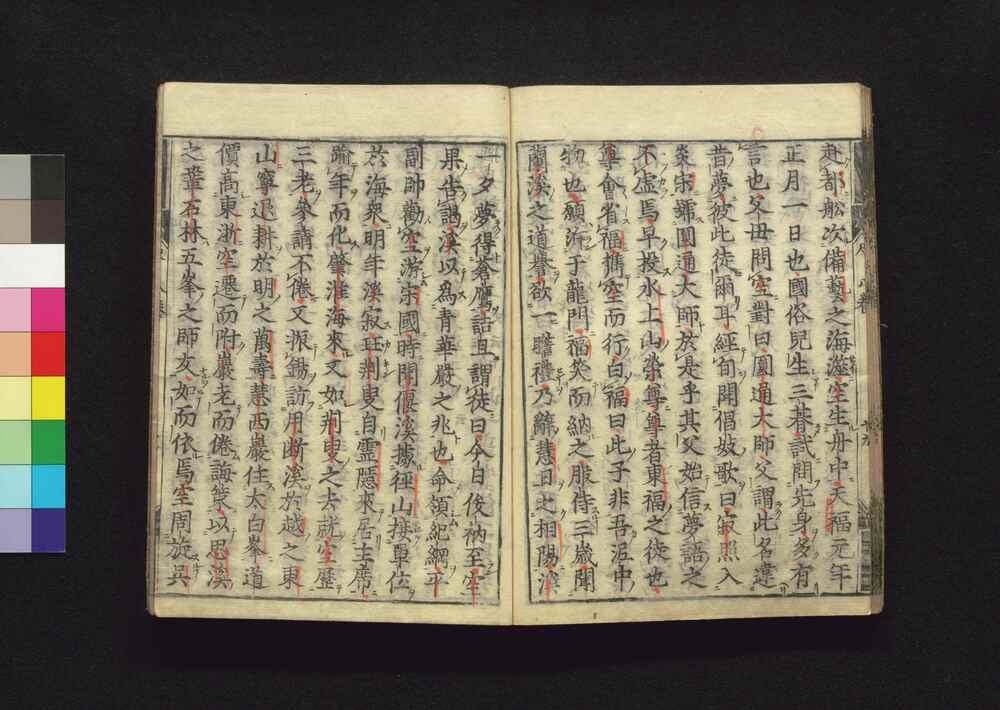 赴都舩次備藝之海澨空生舟中天福元年
正月一日也國俗兒生三朞試問先身多有
言也父毋問空對曰圓通大師父謂此名違
昔夢彼此徒爾耳經旬聞倡妓歌曰寂照入
炎宋號圓通大師於是乎其父始信夢語之
不虛焉早投水上山榮尊尊者東福之徒也
尊會省福携空而行白福曰此子非吾泥中
物也願泝于龍門福笑而納之服侍三歲聞
蘭溪之道譽欲一瞻禮乃辭慧日之相陽溪
一夕夢得蒼鷹詰旦謂徒曰今日俊衲至空
果告謁溪以爲青華嚴之兆也命領紀綱平
副帥勸空游宋國時開偃溪據徑山接單位
於海衆明年溪寂珏荆叟自靈隱來居主席
踰年而化肇淮海來又如荆叟之去就空歷
三老參請不倦又振錫訪用斷溪於越之東
山寧退耕於明之萬壽慧西巖住太白峯道
價高東浙空遷而附巖老而倦誨幾以思溪
之輩石林五峯之師友如而依焉空周旋吳